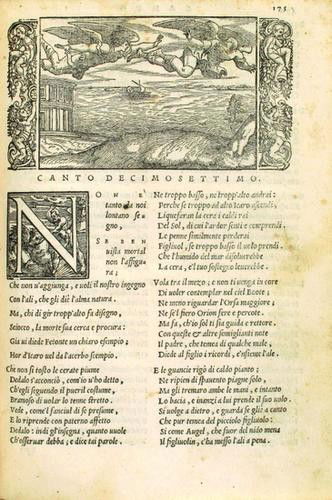 175
CANTO DECIMOSETTIMO.
NON È
tanto da noi
lontano se
gno,
SE BEN
uista mortal
non l'affigu
ra;
Che non u'aggiunga, e uoli il nostro ingegno
Con l'ali, che gli diè l'alma natura.
Ma, chi di gir tropp'alto fa disegno,
Sciocco, la morte sua cerca e procura:
Già ui diede Fetonte un chiaro esempio,
Hor d'Icaro uel da l'acerbo scempio.
Che non sì tosto le cerate piume
Dedalo s'acconciò, com'io u'ho detto,
Ch'egli seguendo il pueril costume,
Bramoso di uolar le tenne stretto.
Vede, come'l fanciul di se presume,
E lo riprende con paterno affetto
Dedalo: indi gl'insegna, quanto uuole
Ch'osseruar debba; e dice tai parole.
Ne troppo basso, ne tropp'alto andrai:
Perche se troppo ad alto Icaro ascendi,
Liquefaran la cera i caldi rai
Del Sol, di cui l'ardor senti e comprendi.
Le penne facilmente perderai
Figliuol, se troppo basso il uolo prendi.
Che l'humido del mar dissoluerebbe
La cera, e'l tuo sostegno leuerebbe.
Vola tra il mezo; e non ti uenga in core
Di uoler contemplar nel ciel Boote;
Ne meno riguardar l'Orsa maggiore;
Ne sel fiero Orion fere e percote.
Ma fa, ch'io sol ti sia guida e rettore.
Con queste et altre somiglianti note
Il padre, che temea di qualche male,
Diede al figlio i ricordi, e'nsieme l'ale.
E le guancie rigò di caldo pianto:
Ne ripien di spauento piagne solo,
Ma gli tremaro ambe le mani, e intanto
Lo bacia, e inanzi a lui prende il suo uolo.
Si uolge a dietro, e guarda se gli è a canto
Che pur temea del picciolo figliuolo:
Sì come Augel, che fuor del nido mena
Il figliuolin, c'ha messo l'ali a pena.